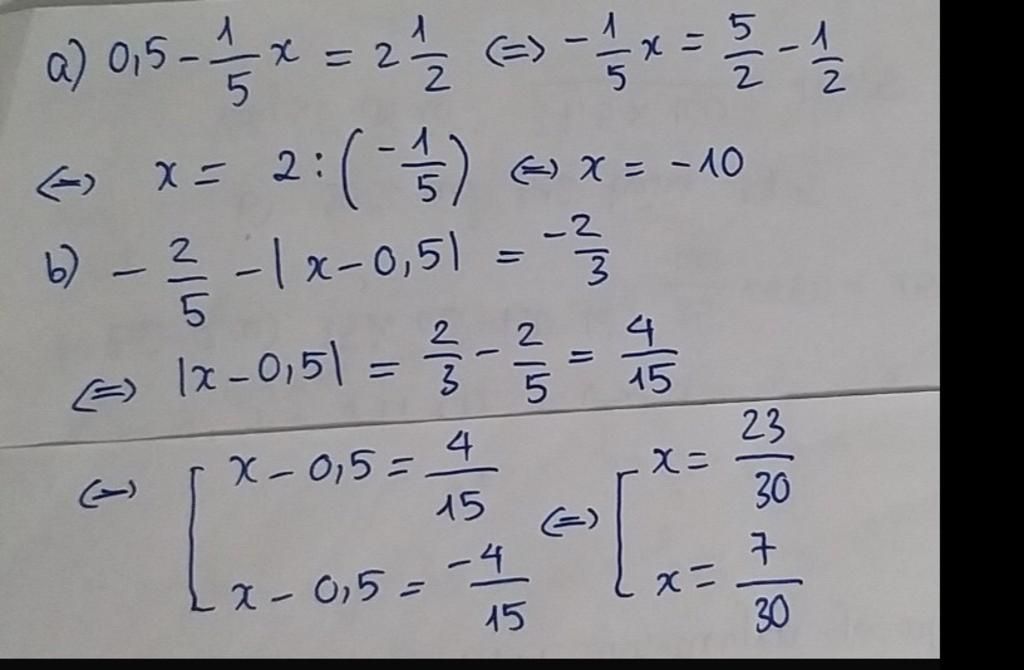 a) 0,5 - 1/5 x = 2 1/2 <=> - 1/5 x = 5/2 - 1/2
<=> x = 2 : (-1/5) <=> x = -10
b) - 2/5 - | x - 0,5 | = -2/3
<=> | x - 0,5 | = 2/3 - 2/5 = 4/15
<=> [ x - 0,5 = 4/15 <=> [ x = 23/30
x - 0,5 = -4/15 x = 7/30